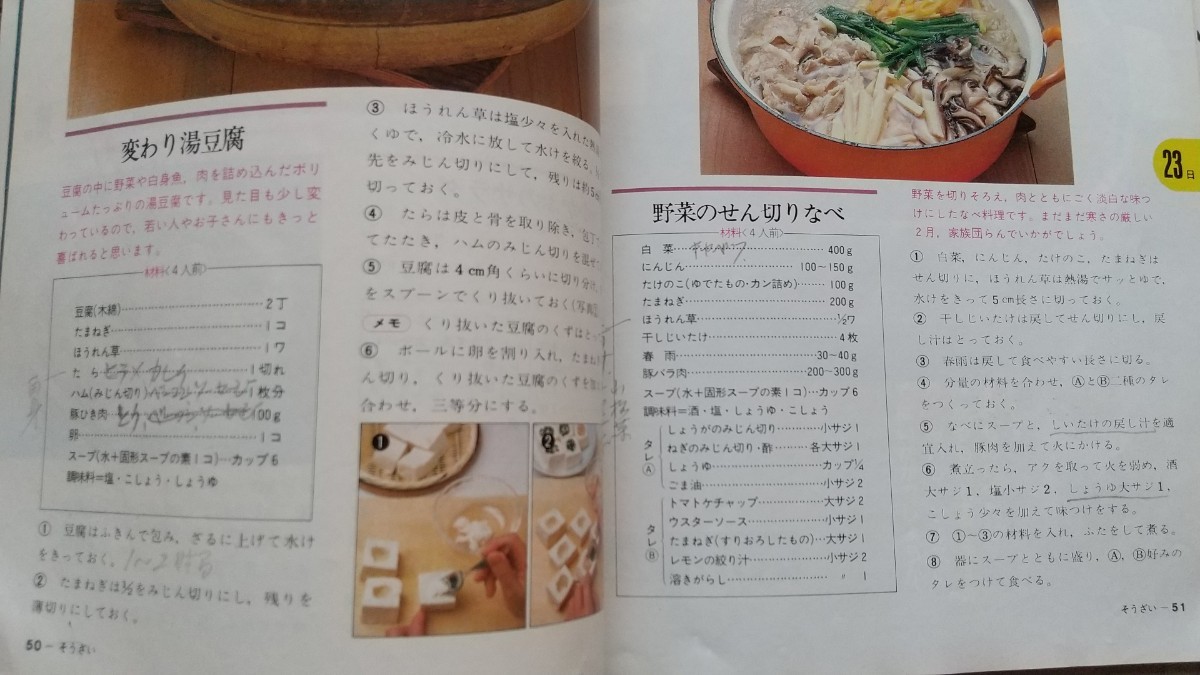 変わり湯豆腐
豆腐の中に野菜や白身魚，肉を詰め込んだボリ
ュームたっぷりの湯豆腐です。見た目も少し変
わっているので，若い人やお子さんにもきっと
喜ばれると思います。
材料(4人前)
豆腐(木綿)…2丁
たまねぎ…1コ
ほうれん草…1ワ
たら…1切れ
ハム(みじん切り)…1枚分
豚ひき肉…100g
卵…1コ
スープ(水＋固形スープの素1コ)…カップ6
調味料＝塩・こしょう・しょうゆ
① 豆腐はふきんで包み，ざるに上げて水け
をきっておく。
② たまねぎは½をみじん切りにし，残りを
薄切りにしておく。
50－そうざい
③ ほうれん草は塩少々を入れた
くゆで，冷水に放して水けを絞る。
先をみじん切りにして，残りは約5
切っておく。
④ たらは皮と骨を取り除き，包丁
てたたき，ハムのみじん切りを混ぜ
⑤ 豆腐は4cm角くらいに切り分け，
をスプーンでくり抜いておく(写真
メモ くり抜いた豆腐のくずはと
⑥ ボールに卵を割り入れ，たまね
ん切り，くり抜いた豆腐のくずを加
合わせ，三等分にする。
1
2
野菜のせん切りなべ
材料(4人前)
白菜…キャベツ…400g
にんじん…100～150g
たけのこ(ゆでたもの・カン詰め)…100g
たまねぎ…200g
ほうれん草…½ワ
干しじいたけ…4枚
春雨…30～40g
豚バラ肉…200～300g
スープ(水＋固形スープの素1コ)…カップ6
調味料＝酒・塩・しょうゆ・こしょう
タレⒶ
しょうがのみじん切り…小サジ1
ねぎのみじん切り・酢…各大サジ1
しょうゆ…カップ¼
ごま油…小サジ2
タレⒷ
トマトケチャップ…大サジ2
ウスターソース…小サジ1
たまねぎ(すりおろしたもの)…大サジ1
レモンの絞り汁…小サジ2
溶きがらし…〃 1
小松菜
23日
野菜を切りそろえ，肉とともにごく淡白な味つ
けにしたなべ料理です。まだまだ寒さの厳しい
2月，家族団らんでいかがでしょう。
① 白菜，にんじん，たけのこ，たまねぎは
せん切りに，ほうれん草は熱湯でサッとゆで，
水けをきって5cm長さに切っておく。
② 干しじいたけは戻してせん切りにし，戻
し汁はとっておく。
③ 春雨は戻して食べやすい長さに切る。
④ 分量の材料を合わせ，ⒶとⒷ二種のタレ
をつくっておく。
⑤ なべにスープと，しいたけの戻し汁を適
宜入れ，豚肉を加えて火にかける。
⑥ 煮立ったら，アクを取って火を弱め，酒
大サジ1，塩小サジ2，しょうゆ大サジ1，
こしょう少々を加えて味つけをする。
⑦ ①～③の材料を入れ，ふたをして煮る。
⑧ 器にスープとともに盛り，Ⓐ，Ⓑ好みの
タレをつけて食べる。
そうざい－51